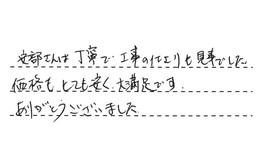 安部さんは丁寧で工事の仕上りも見事でした
価格もとても安く大満足です。
ありがとうございました